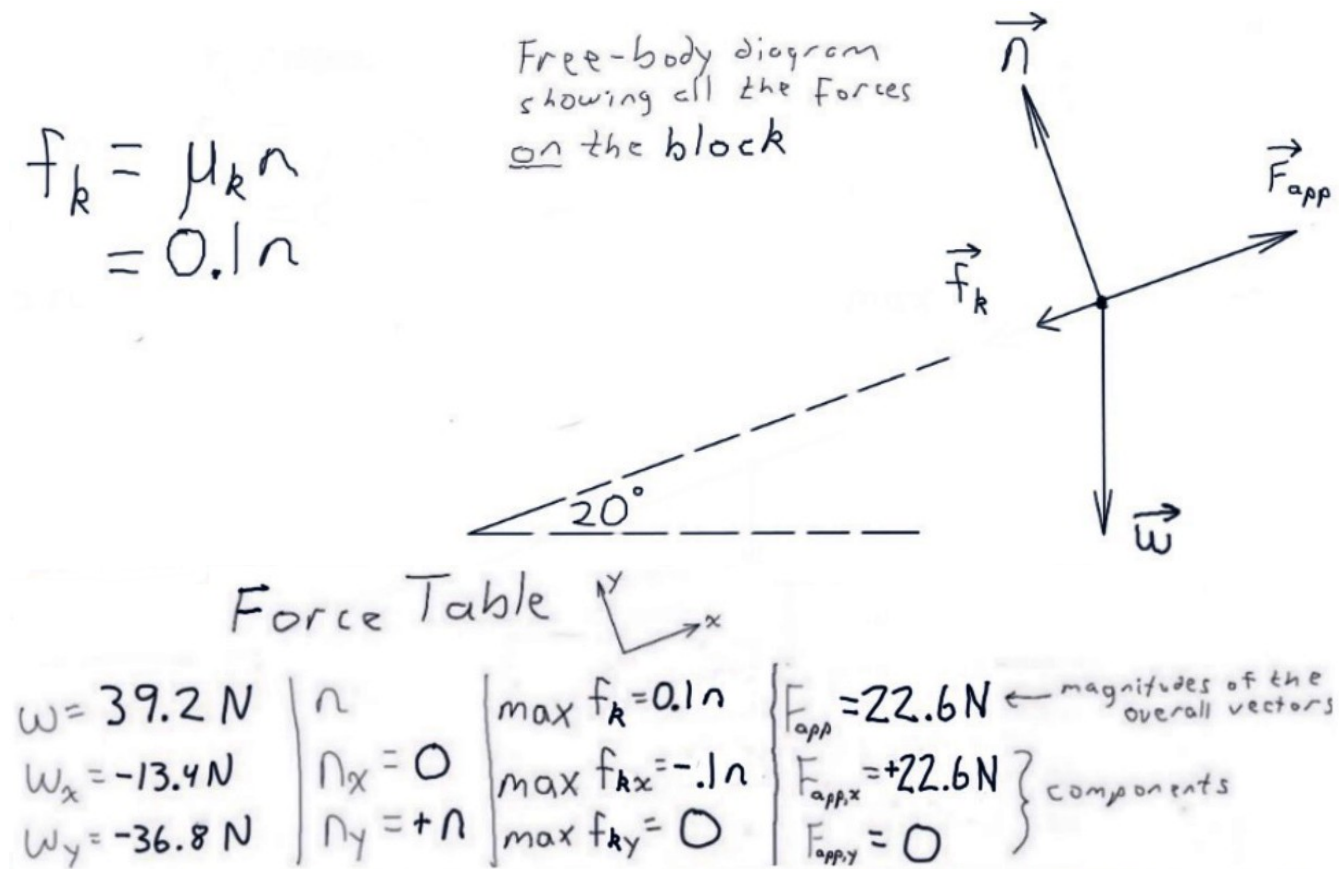 Free-body diagram
showing all the forces
on the block
f_k = μ_k n
= 0.1n
n⃗
F⃗_app
f⃗_k
20°
w⃗
Force Table
y
x
w = 39.2 N | n | max f_k = 0.1n | F_app = 22.6 N ← magnitudes of the overall vectors
w_x = -13.4 N | n_x = 0 | max f_kx = -.1n | F_app,x = +22.6 N } components
w_y = -36.8 N | n_y = +n | max f_ky = 0 | F_app,y = 0